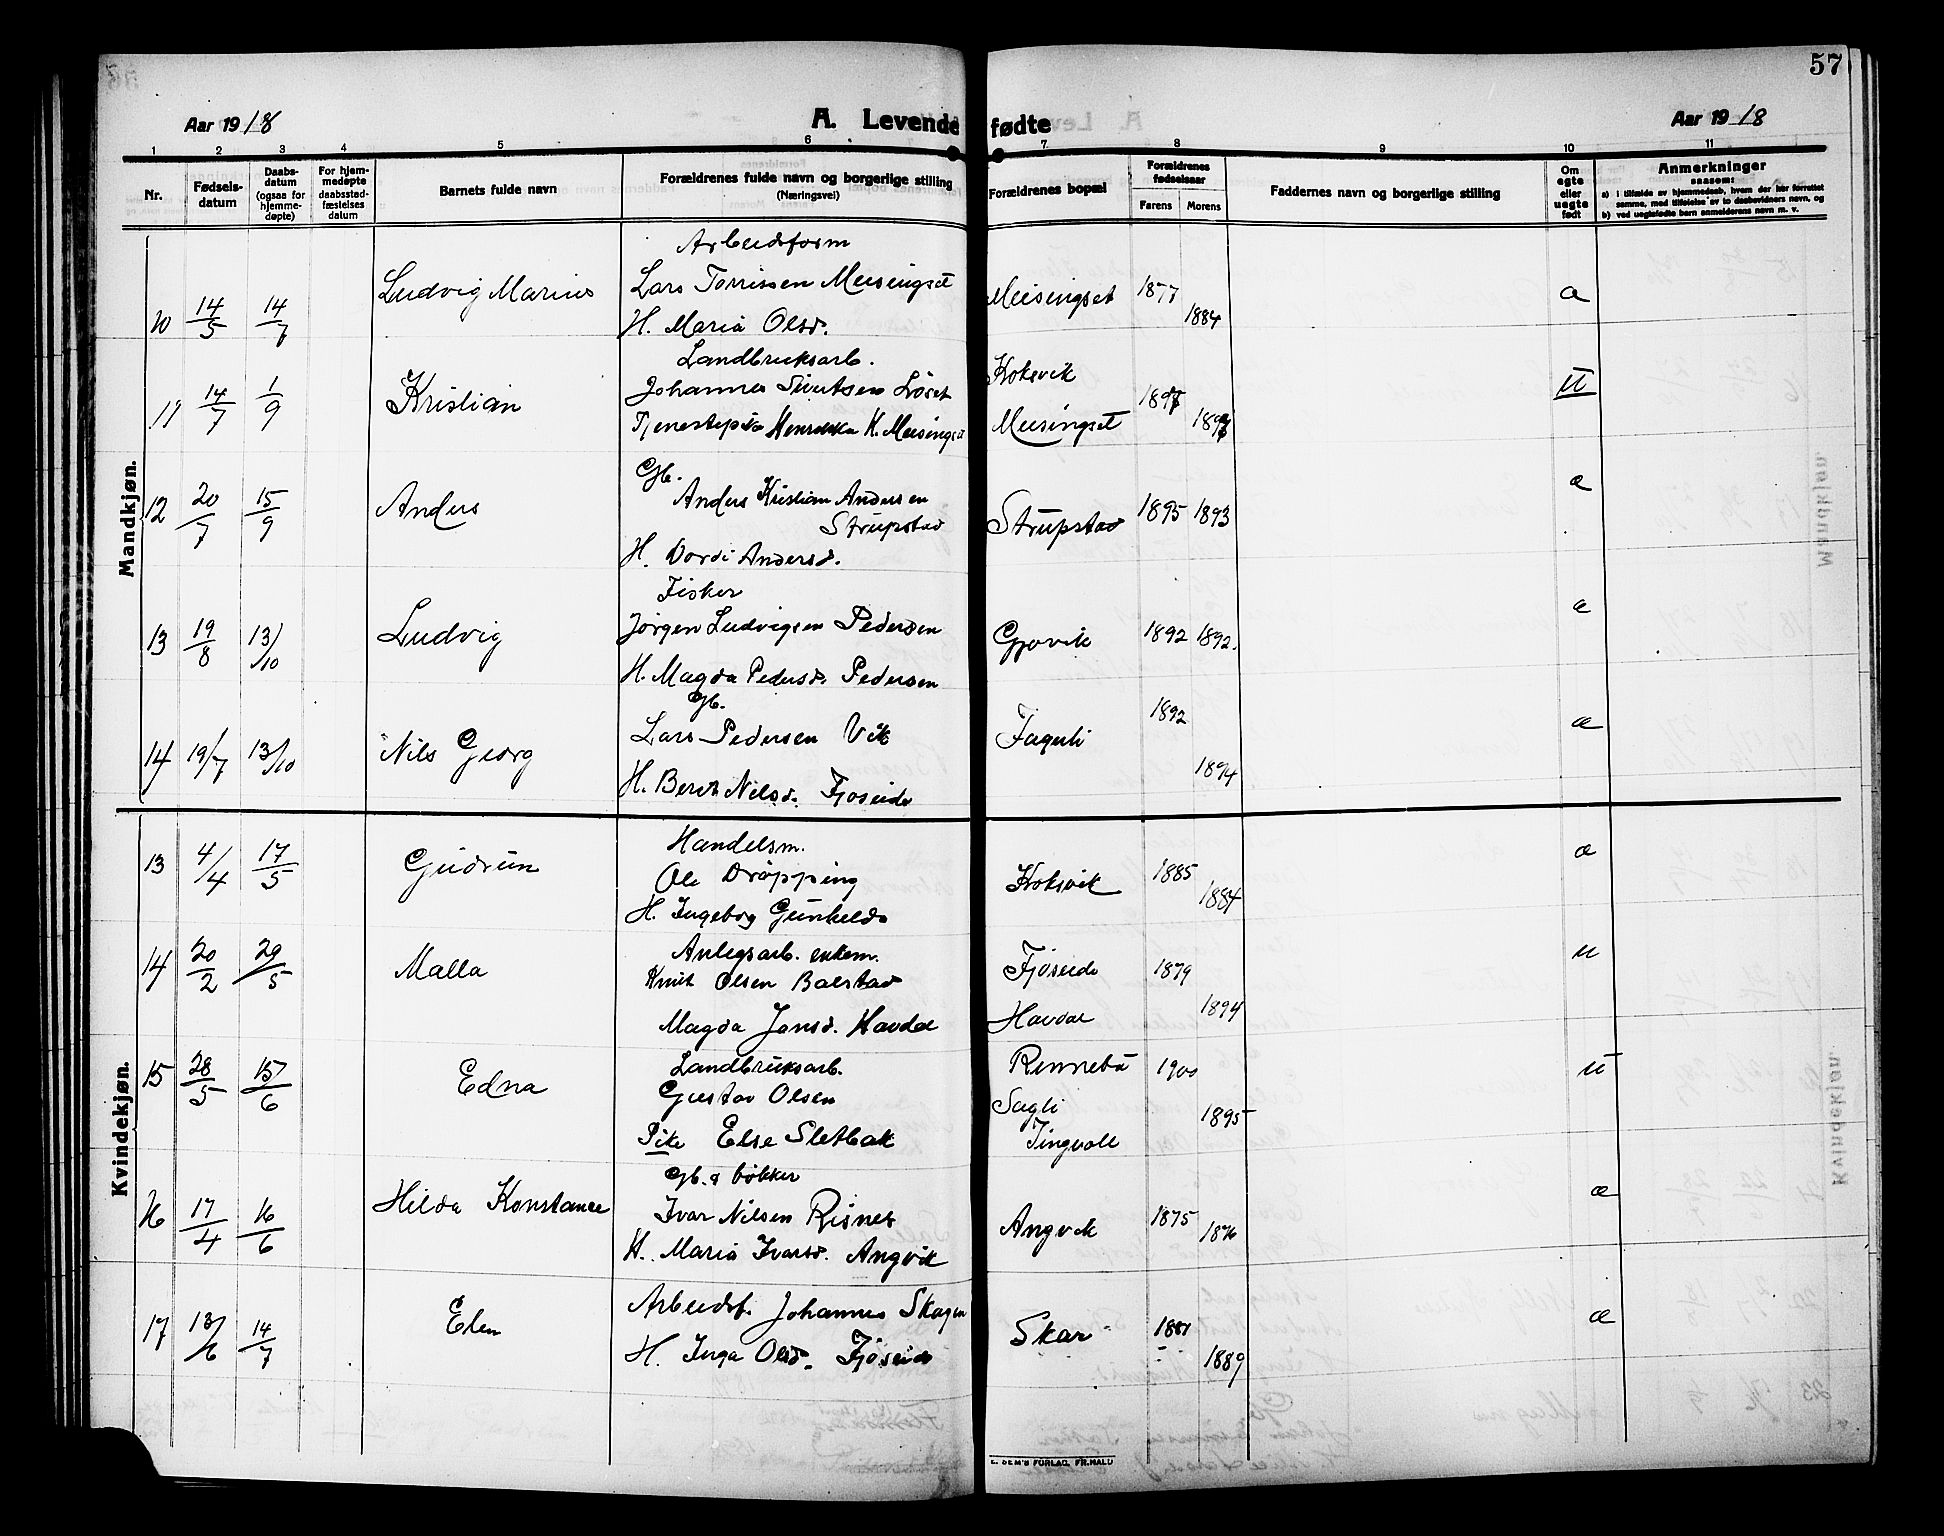 57
Aar 1918
A. Levende fødte
Aar 1918
1 2 3 4 5 6 7 8 9 10 11
Nr.
Fødsels-
datum
Daabs-
datum
(ogsaa for
hjemme-
døpte)
For hjem-
medøpte
daabsstad-
fæstelses
datum
Barnets fulde navn
Forældrenes fulde navn og borgerlige stilling
(Næringsvei)
Forældrenes bopæl
Forældrenes
fødselsaar
Farens Morens
Faddernes navn og borgerlige stilling
Om
egte
eller
uegte
født
Anmerkninger
saasom:
a) i tilfælde av hjemmedaab, hvem der har forrettet
samme, med tilføielse av to daabsvidners navn, og
b) ved uegtefødte barn anmelderens navn m. v.
Mandkjøn.
Arbeidsform
Ludvig Marius Lars Torrissen Meisingset Meisingset 1877 æ
10 14/5 14/7 H. Maria Olsd. 1884
Landbruksarb. Koksvik
11 14/7 1/9 Kristian Johannes Sivertsen Løset 1897 u
Tjenestepike Henrikka K. Meisingset Meisingset
Gb.
12 20/7 15/9 Anders Anders Kristian Andersen Strupstad 1895 1893 æ
Strupstad
H. Dordi Andersd.
Fisker
13 19/8 13/10 Ludvig Jørgen Ludvigsen Pedersen Gjøvik 1892 1892. æ
H. Magda Pedersd. Pedersen
Gb.
14 19/7 13/10 Nils Georg Lars Pedersen Vik Fagerli 1892 æ
H. Beret Nilsd. Fjøseide 1894
Kvindekjøn.
Handelsm.
13 4/4 17/5 Gudrun Ole Drøpping Koksvik 1885 æ
H. Ingeborg Gunhilds 1884
Anlegsarb. enkem.
14 20/2 29/5 Malla Knut Olsen Balstad Fjøseide 1879 u
Magda Jonsd. Havdal Havdal 1894
Landbruksarb. Rennebu 1900 u
15 28/5 157/6 Edna Gustav Olsen Sagli
Pike Else Sletbak Tingvoll 1895
Gb. & bøkker
16 17/4 16/6 Hilda Konstance Ivar Nilsen Risnes Angvik 1875 1876 æ
H. Maria Ivarsd. Angvik
17 13/6 14/7 Elen Arbeidsf. Johannes Skagen Skar 1881 æ
H. Inga Olsd. Fjøseide 1889
E. SEM'S FORLAG, FR.HALD